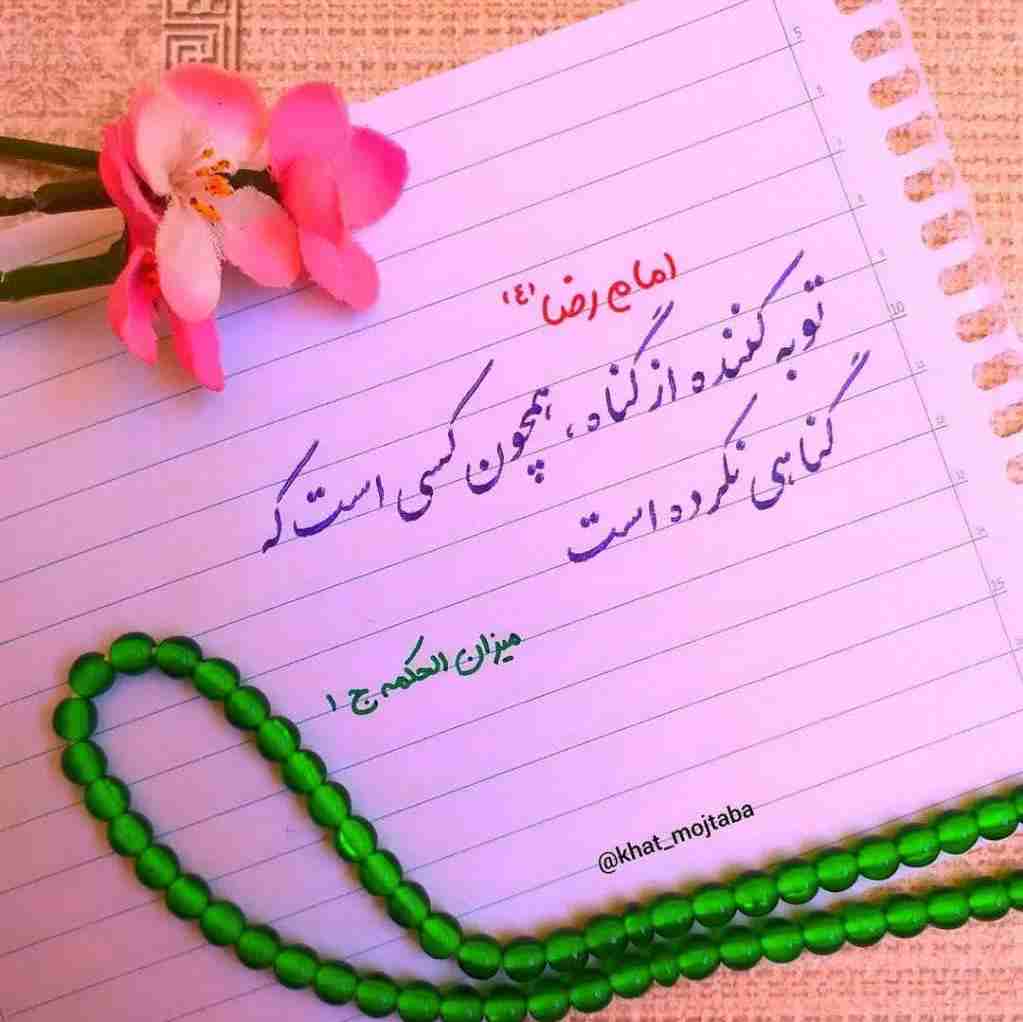 امام رضا (ع)
توبه کننده از گناه، همچون کسی است که
گناهی نکرده است
میزان الحکمه ج ۱
@khat_mojtaba
5
10
25